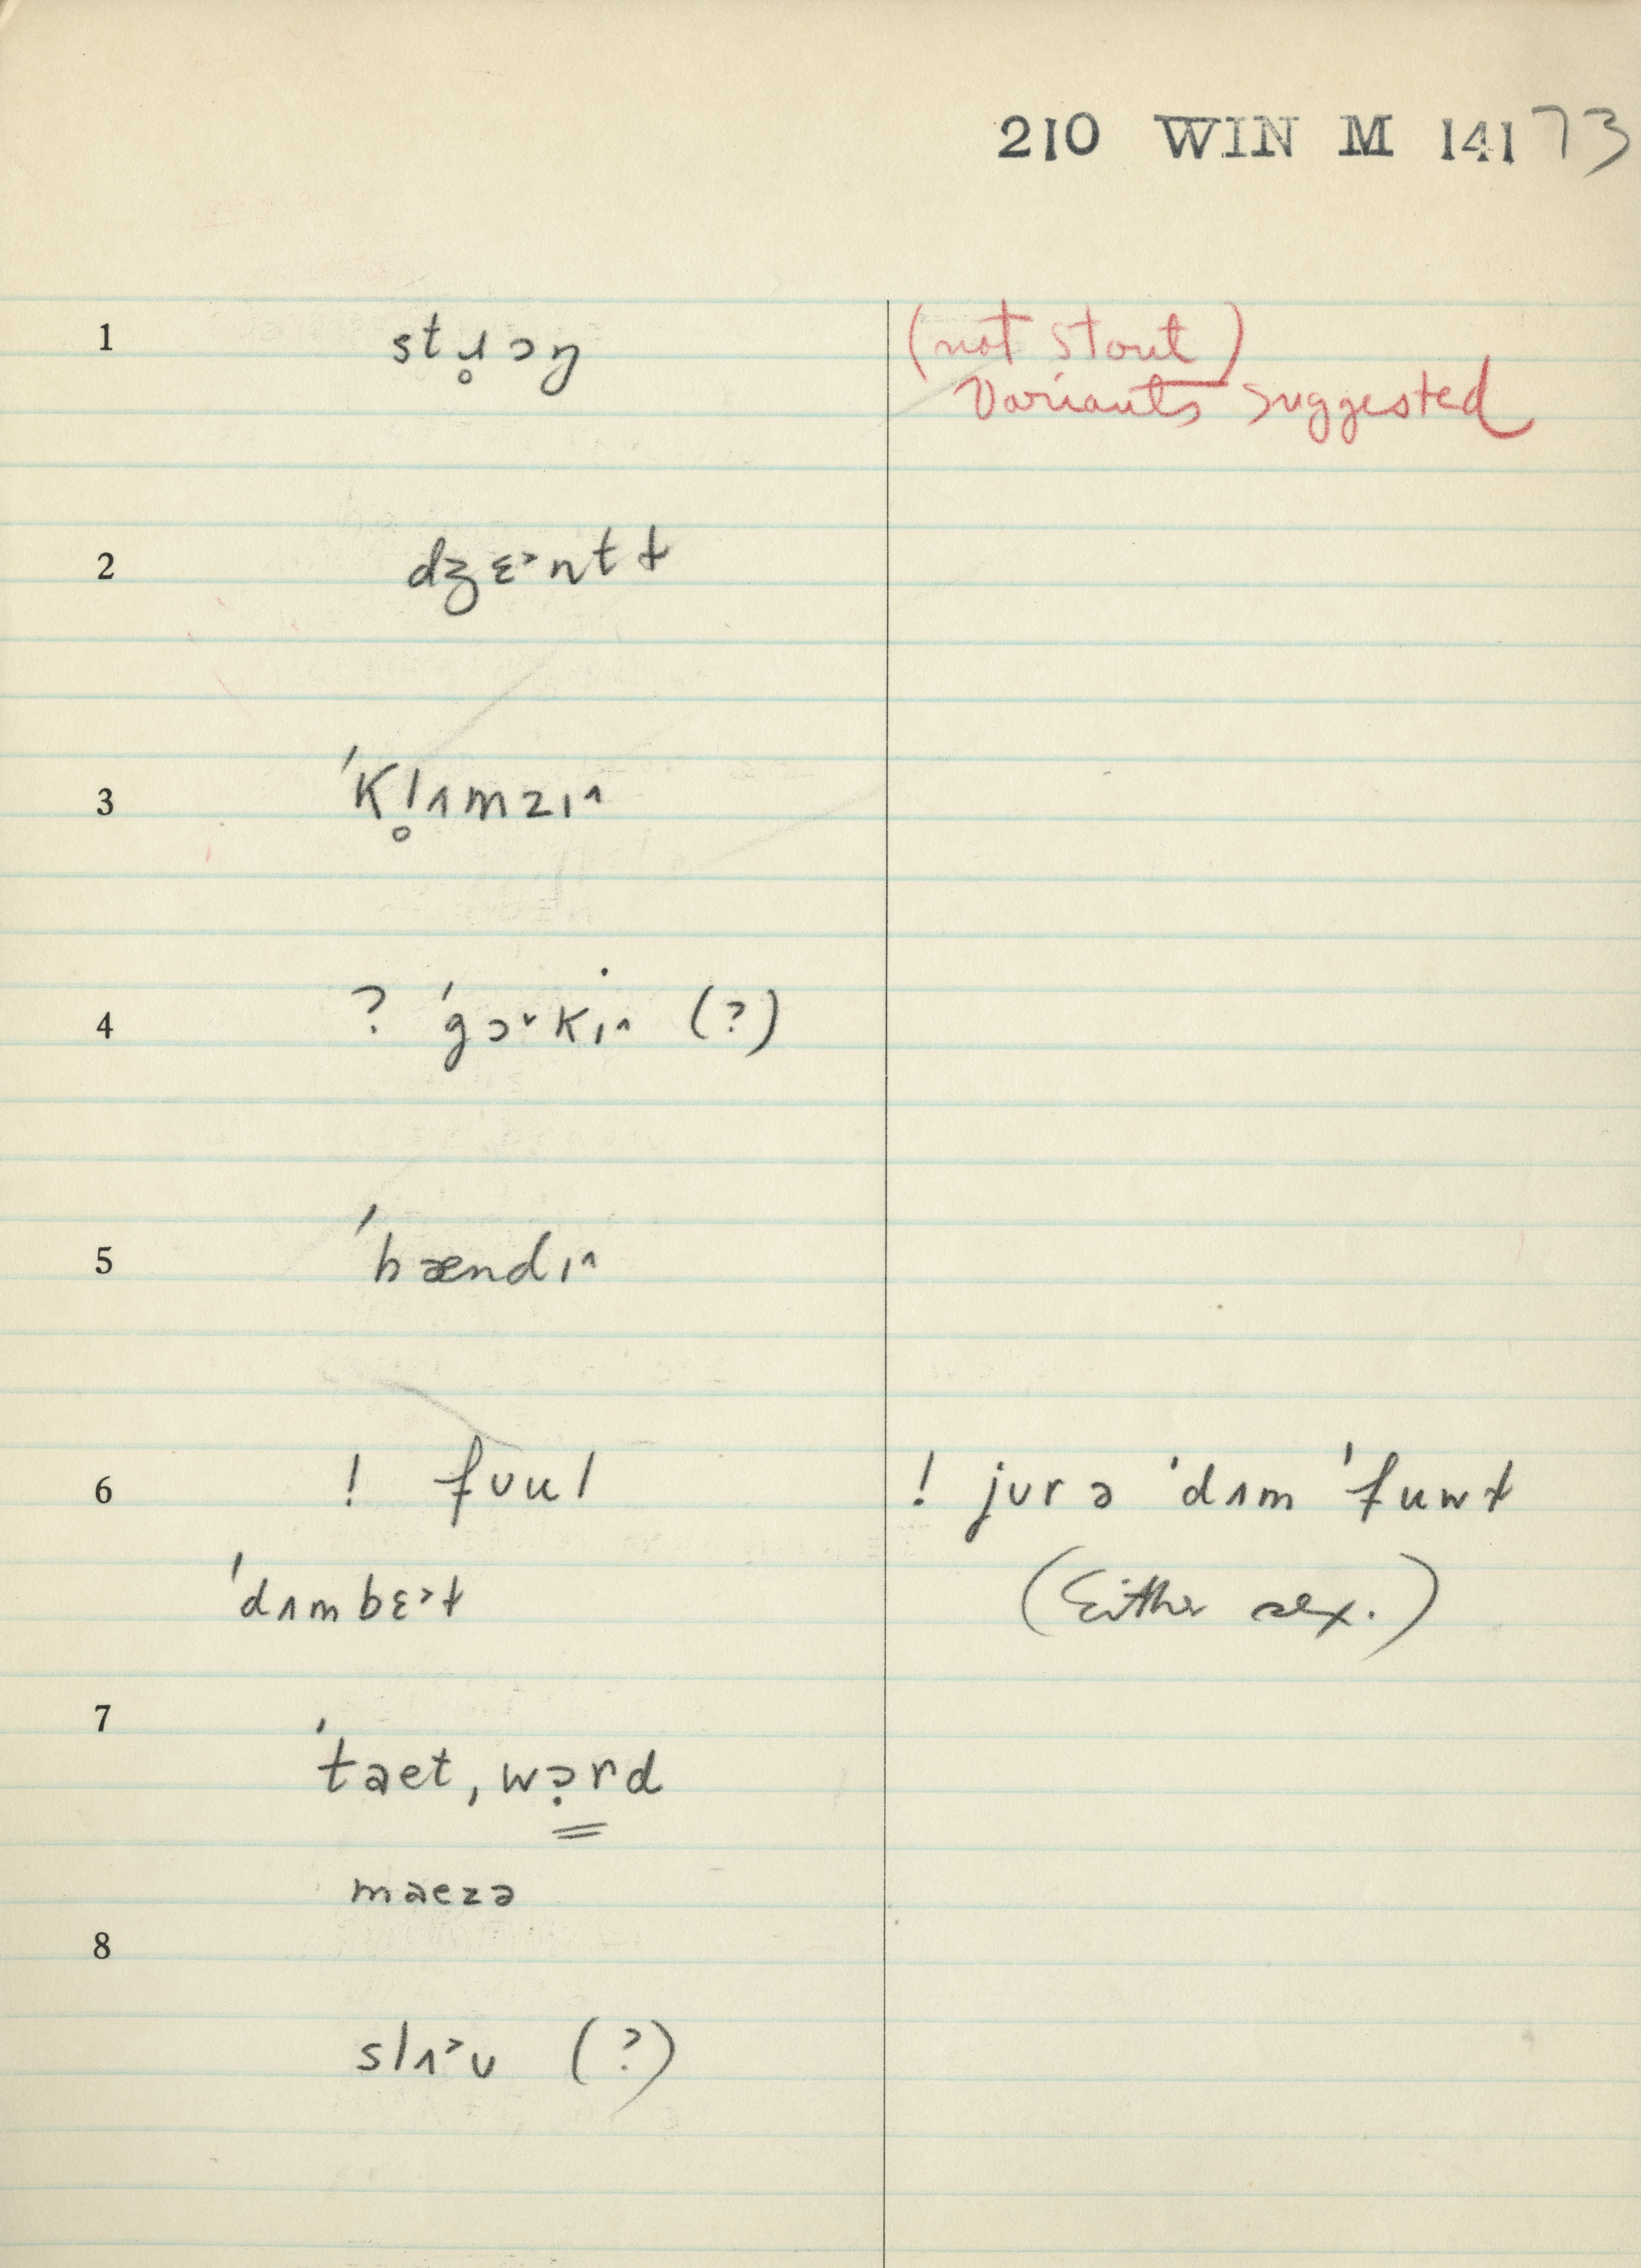 210 WIN M 14173
1 stɹ̥ɔŋ (not stout)
Variants suggested
2 dʒɛ˃ntɫ
3 ˈkl̥ʌmzɪ˄
4 ? ˈgɔ˅kɪ˄ (?)
5 ˈhændɪ˄
6 ! fʊul ! jʊr ə ˈdʌm ˈfuwɫ
ˈdʌmbɛ˃ɫ (Either sex.)
7 ˈtaet, wə̣rd
maezə
8
slʌ˃ʊ (?)